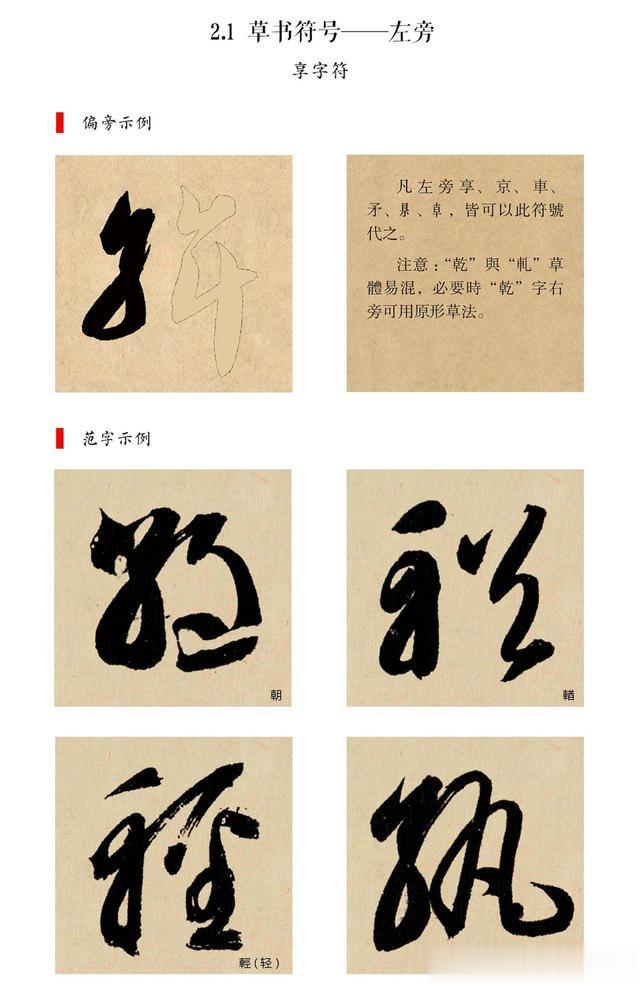 2.1 草书符号——左旁
享字符
偏旁示例
凡左旁享、京、車、
矛、㫗、𠦝，皆可以此符號
代之。
注意：“乾”與“軋”草
體易混，必要時“乾”字右
旁可用原形草法。
范字示例
朝
輶
輕(轻)